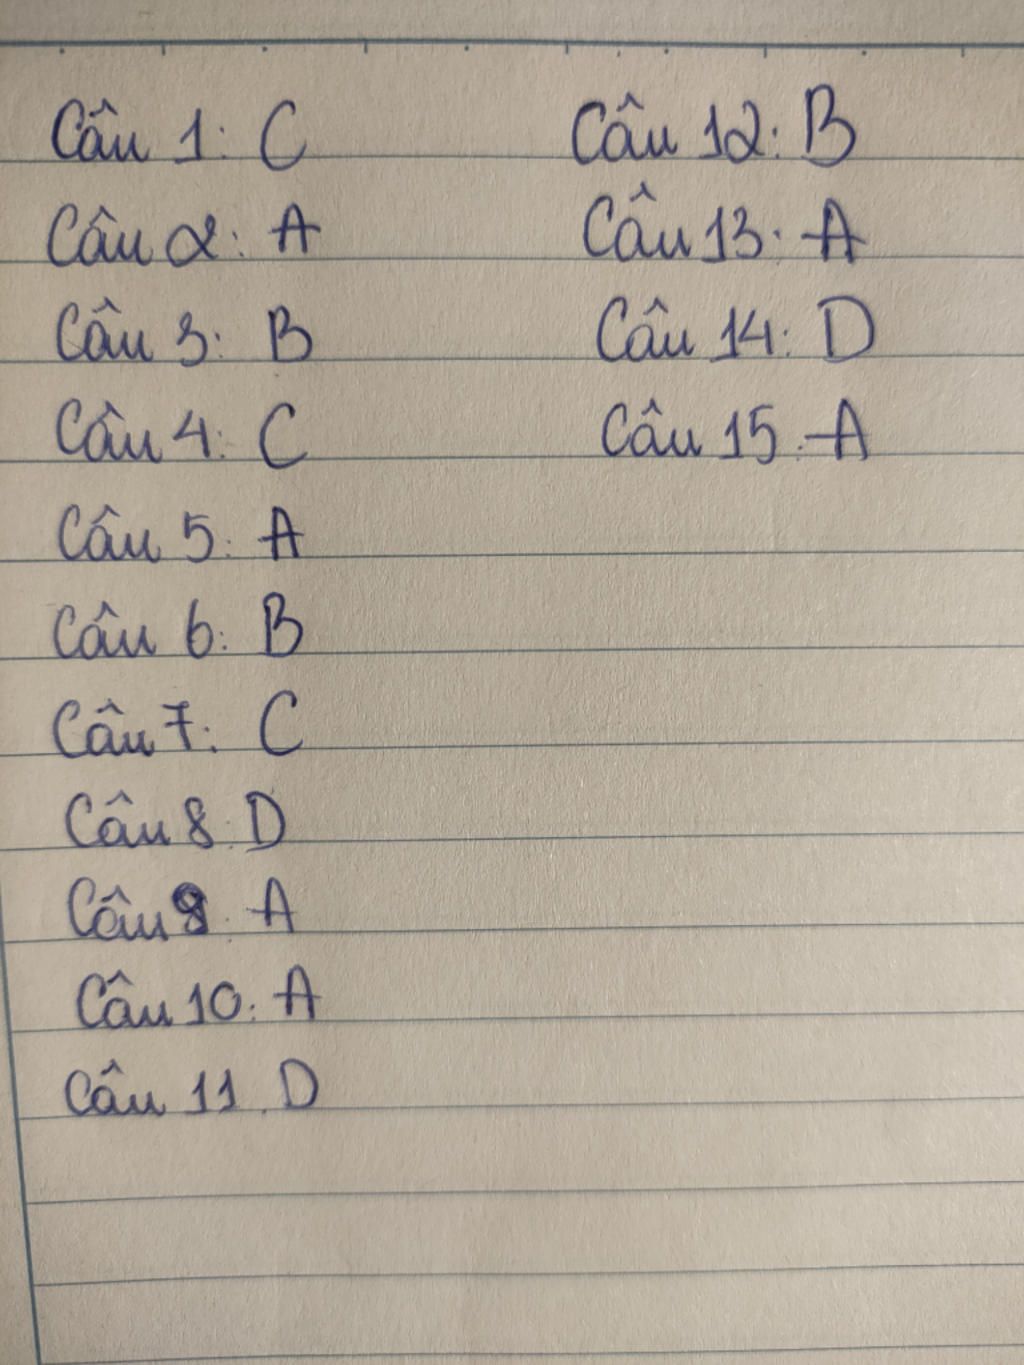 Câu 1: C
Câu 2: A
Câu 3: B
Câu 4: C
Câu 5: A
Câu 6: B
Câu 7: C
Câu 8: D
Câu 9: A
Câu 10: A
Câu 11. D
Câu 12: B
Câu 13: A
Câu 14: D
Câu 15: A